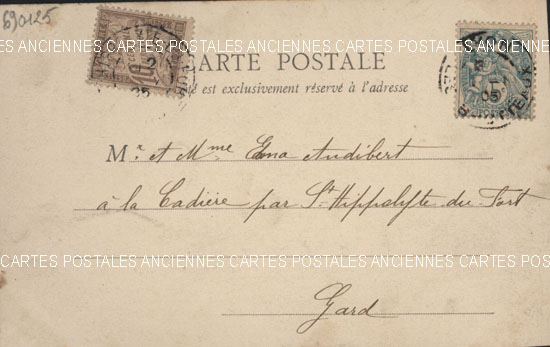 690125
CARTE POSTALE
CARTES POSTALES ANCIENNES CARTES POSTALES ANCIENNES CARTES POSTALES
est exclusivement réservé à l'adresse
Mr. et Mme Edna Audibert
à la Cadière par St Hippolyte du Fort
CARTES POSTALES ANCIENNES CARTES POSTALES ANCIENNES CARTES POSTALES
Gard